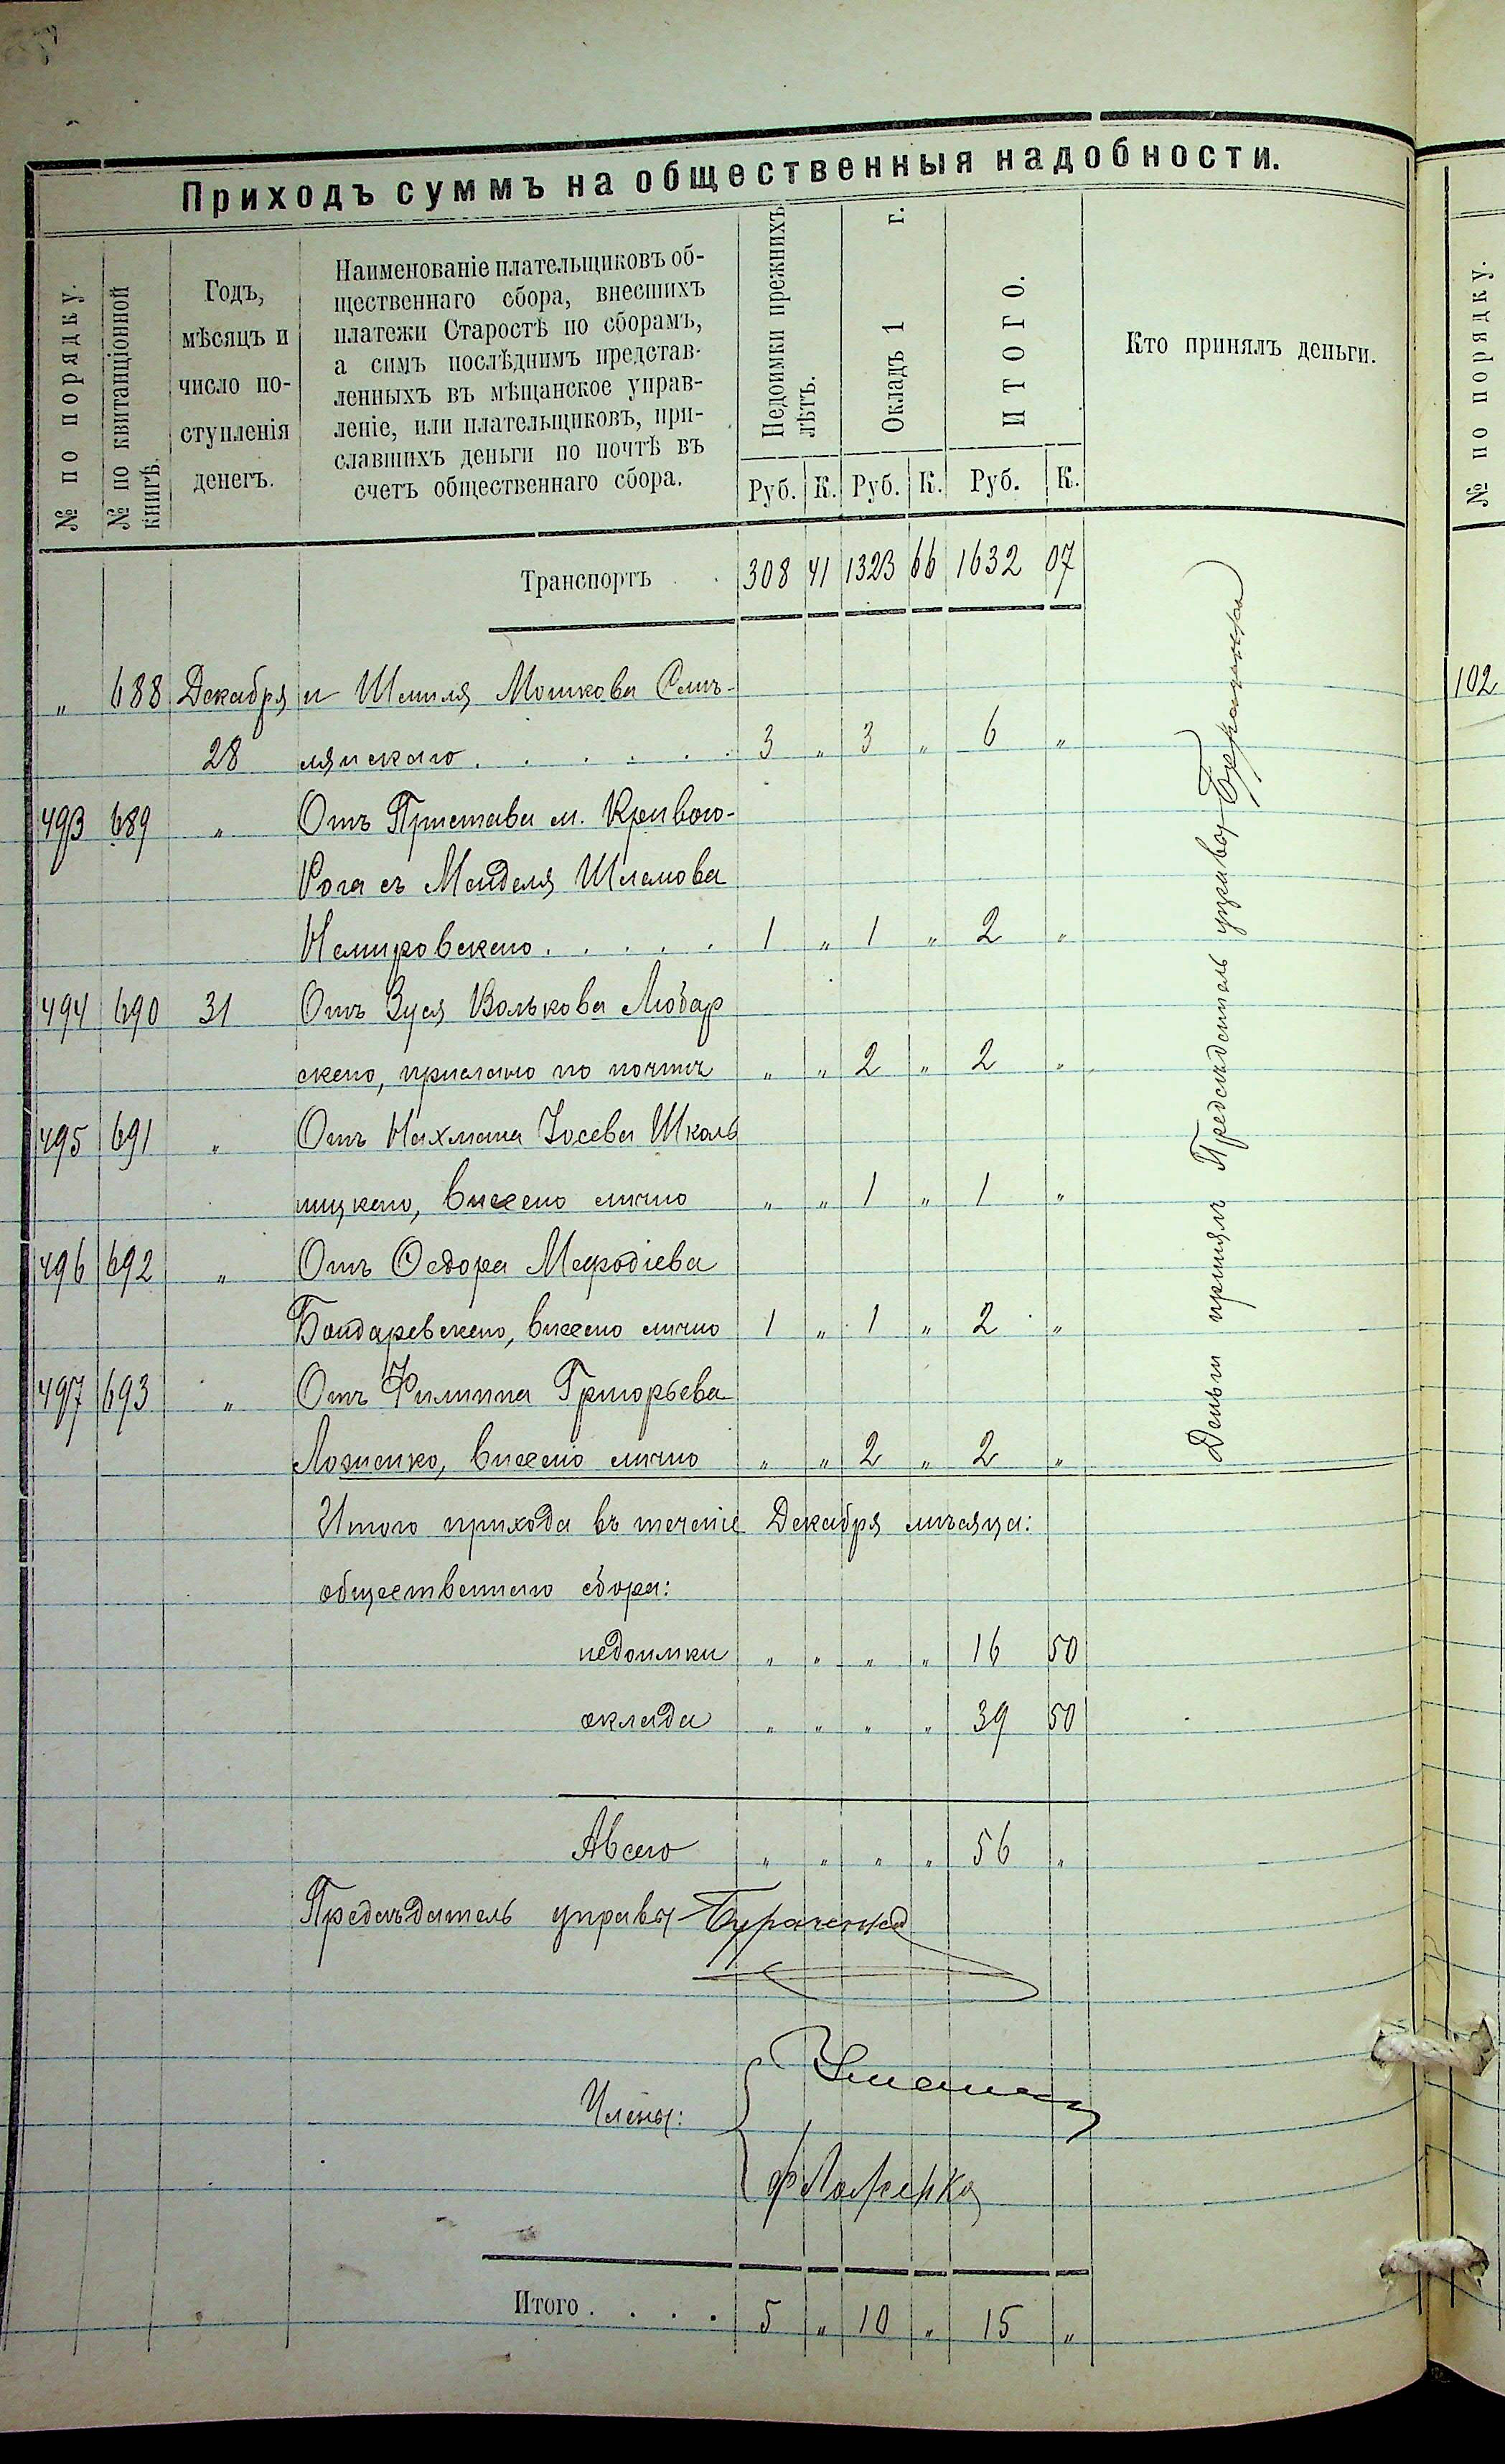 Приходъ суммъ на общественныя надобности.
№ по порядку.
№ по квитанціонной
книгѣ.
Годъ,
мѣсяцъ и
число по-
ступленія
денегъ.
Наименованіе плательщиковъ об-
щественнаго сбора, внесшихъ
платежи Старостѣ по сборамъ,
а симъ послѣднимъ представ-
ленныхъ въ мѣщанское управ-
леніе, или плательщиковъ, при-
славшихъ деньги по почтѣ въ
счетъ общественнаго сбора.
Недоимки прежнихъ
лѣтъ.
Окладъ 1 г.
ИТОГО.
Кто принялъ деньги.
Руб. К. Руб. К. Руб. К.
Транспортъ . . 308 41 1323 66 1632 07
„ 688 Декабря и Шмиля Мошкова Смѣ-
28 лянскаго . . . . . . 3 „ 3 „ 6 „
493 689 „ Отъ Пристава м. Кривого-
Рога съ Менделя Шлемова
Немировскаго . . . . . 1 „ 1 „ 2 „
494 690 31 Отъ Зуся Волькова Любар
скаго, прислано по почтѣ „ „ 2 „ 2 „
495 691 „ Отъ Нахмана Іосева Школь
ницкаго, внесено лично „ „ 1 „ 1 „
496 692 „ Отъ Ѳедора Мефодіева
Бондаревскаго, внесено лично 1 „ 1 „ 2 „
497 693 „ Отъ Филиппа Григорьева
Ложенко, внесено лично „ „ 2 „ 2 „
Итого прихода въ теченіе Декабря мѣсяца:
общественнаго сбора:
недоимки „ „ „ „ 16 50
оклада „ „ „ „ 39 50
А всего „ „ „ „ 56 „
Предсѣдатель управы Бураченко
Члены:
Ф Ложенко
Итого . . . . 5 „ 10 „ 15 „
Деньги принялъ Предсѣдатель управы Бураченко
№ по порядку.
102